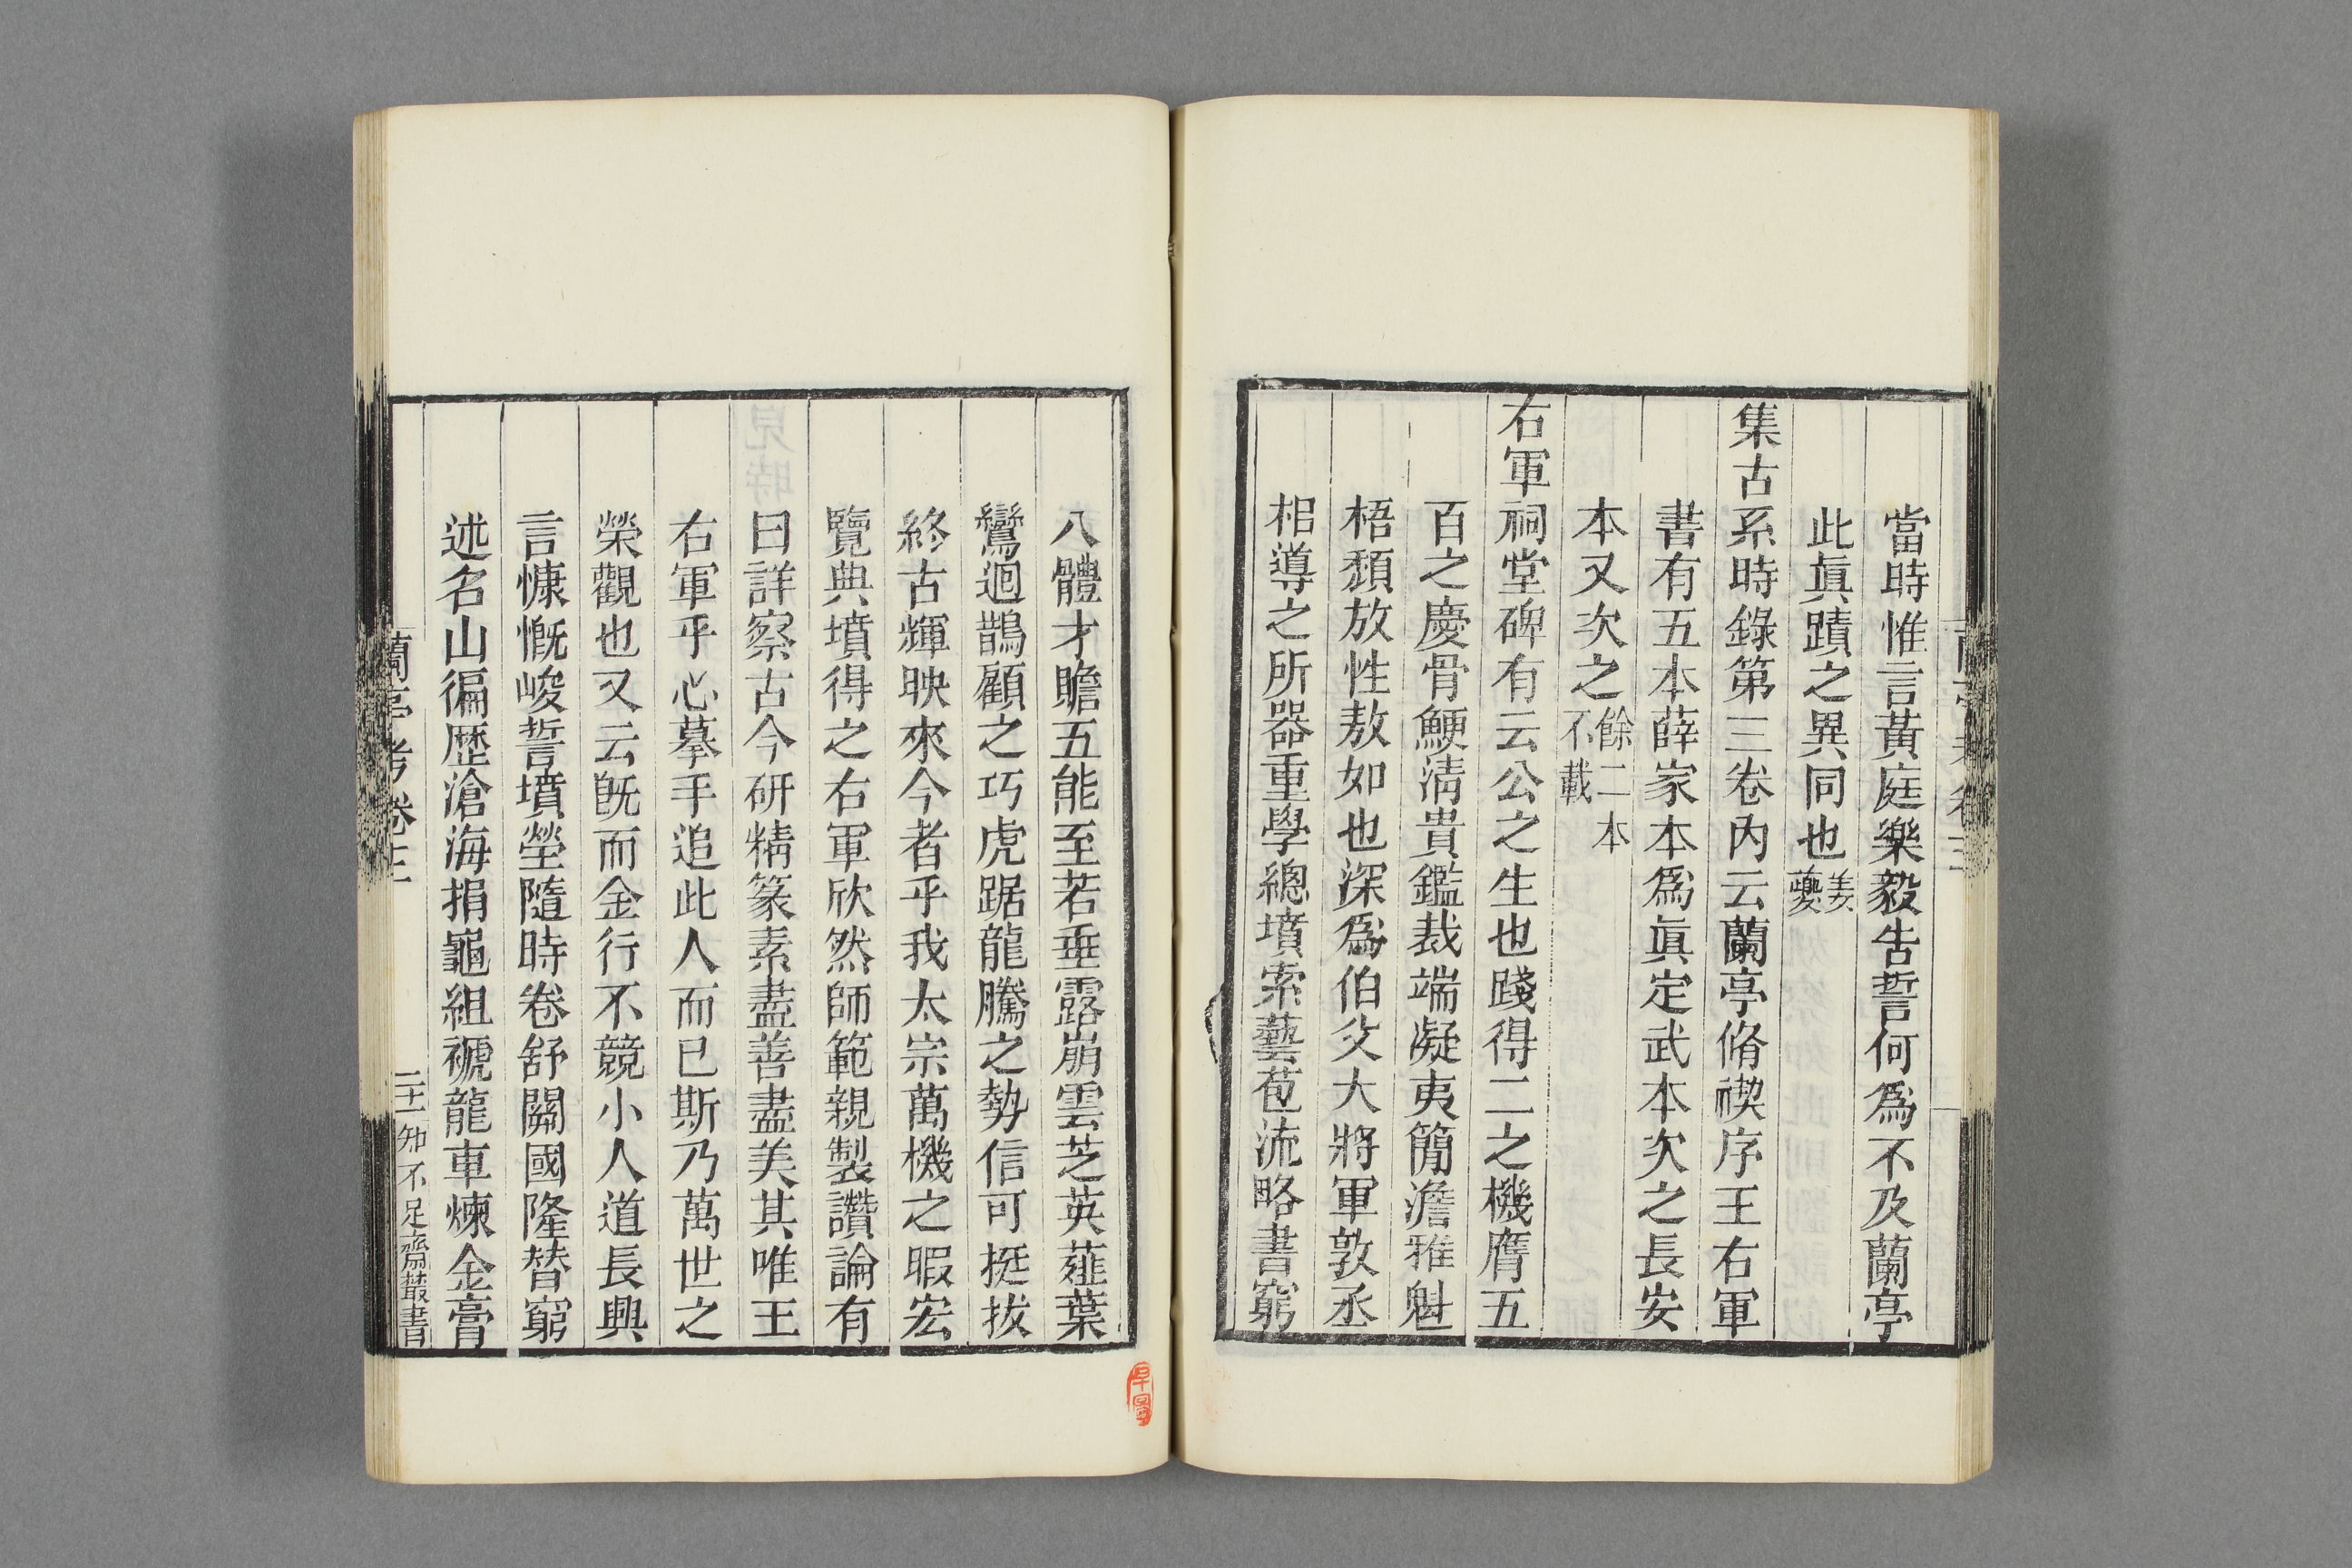 當時惟言黃庭樂毅告誓何爲不及蘭亭
此眞蹟之異同也姜夔
集古系時錄第三卷內云蘭亭脩禊序王右軍
書有五本薛家本爲眞定武本次之長安
本又次之餘二本不載
右軍祠堂碑有云公之生也踐得二之機膺五
百之慶骨鯁淸貴鑑裁端凝夷簡澹雅魁
梧頽放性敖如也深爲伯父大將軍敦丞
相導之所器重學總墳索藝苞流略書窮
八體才贍五能至若垂露崩雲芝英薤葉
鸞迴鵲顧之巧虎踞龍騰之勢信可挺拔
終古輝映來今者乎我太宗萬機之暇宏
覽典墳得之右軍欣然師範親製讚論有
曰詳察古今研精篆素盡善盡美其唯王
右軍乎心摹手追此人而已斯乃萬世之
榮觀也又云旣而金行不競小人道長興
言慷慨峻誓墳塋隨時卷舒關國隆替窮
述名山徧歷滄海捐龜組褫龍車煉金膏
蘭亭考卷三
二十一
知不足齋叢書